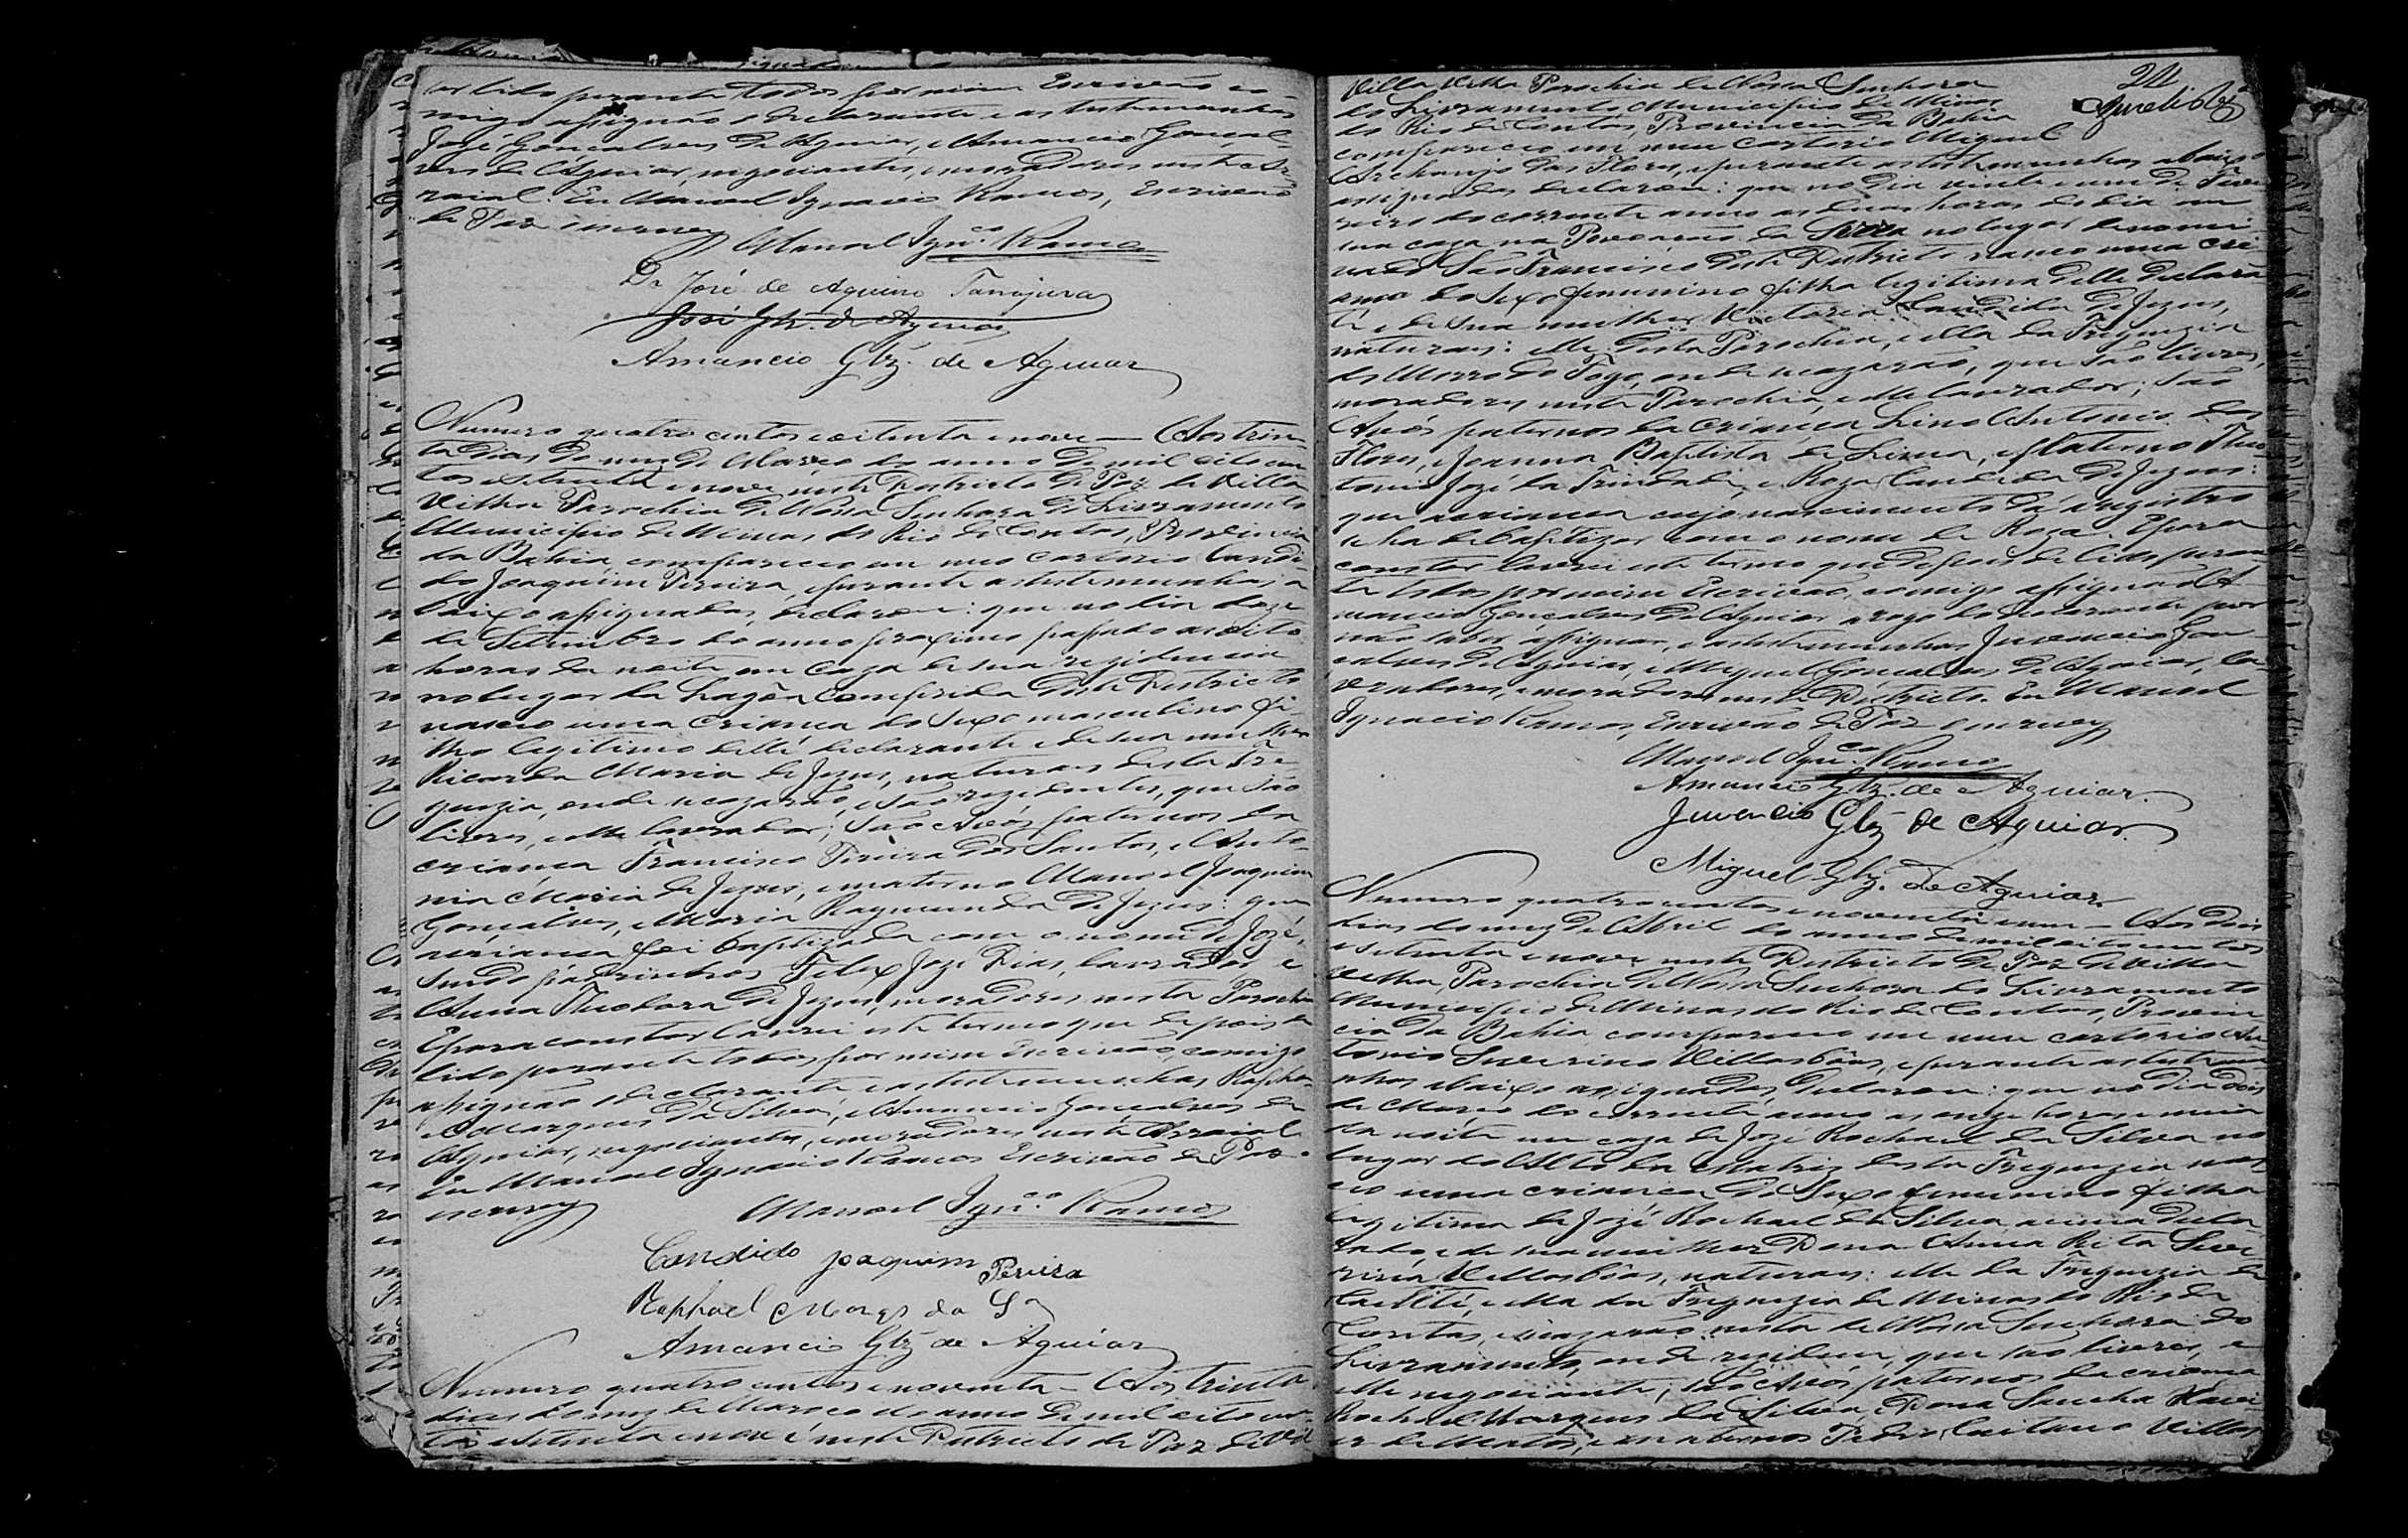 ser lido perante todos por mim Escrivão co-
migo assignão o declarante e as testemunhas
José Gonçalves de Aguiar, e Amancio Gonçal-
ves de Aguiar, negociantes, e moradores neste Ar-
raial. Eu Manoel Ignacio Ramos, Escrivão
de Paz escrevy
Manoel Ign.co Ramos
Dr José de Aquino Tanajura
José Glz. de Aguiar
Amancio Glz. de Aguiar
Numero quatro centos e oitenta e nove — Aos trin-
ta dias do mez de Março do anno de mil oito cen
tos e setenta e nove neste Districto de Paz da Villa
Velha Parochia de Nossa Senhora do Livramento
Municipio de Minas do Rio de Contas, Provincia
da Bahia, compareceo em meo cartorio Candi-
do Joaquim Pereira, e perante as testemunhas a
baixo assignadas, declarou: que no dia doze
de Setembro do anno proximo passado as oito
horas da noite em caza de sua rezidencia
no lugar da Lagôa comprida deste Districto
nasceo uma criança do sexo masculino fi
lho legitimo delle declarante e de sua mulher
Ricarda Maria de Jezus, naturaes desta Fre
guezia, onde se cazarão, e são rezidentes, que são
livres, elle lavrador; são Avós paternos da
criança Francisco Pereira dos Santos, e Anto-
nia Maria de Jezus, e materno Manoel Joaquim
Gonçalves, e Maria Raymunda de Jezus: que
a criança foi baptizada com o nome de Jozé,
sendo padrinhos Felix Joze Dias, lavrador e
Anna Theodora de Jezus, moradores nesta Parochia
E para constar lavrei este termo que depois de
lido perante todos por mim Escrivão, comigo
assignão o declarante e as testemunhas Rapha-
el Marques da Silva, e Amancio Gonçalves de
Aguiar, negociantes, e moradores neste Arraial
Eu Manoel Ignacio Ramos Escrivão de Paz
escrevy
Manoel Ign.co Ramos
Candido Joaquim Pereira
Raphael Marqs da Sa
Amancio Glz de Aguiar
Numero quatro centos e noventa — Aos trinta
dias do mez de Março do anno de mil oito cen-
tos e setenta e nove neste Districto de Paz de Vil
Villa Velha Parochia de Nossa Senhora
do Livramento Municipio de Minas
do Rio de Contas, Provincia da Bahia
compareceo em meu cartorio Miguel
Archanjo das Flores, e perante as testemunhas abaixo
assignadas declarou: que no dia vinte e um de Feve
reiro do corrente anno as duas horas do dia em
sua caza na Povoação da no lugar denomi
nado São Francisco deste Districto nasceo uma cri
ança do sexo femenino filha legitima delle declaran
te e de sua mulher Victoria Candida de Jezus,
naturaes: elle desta Parochia, e ella da Freguezia
do Morro do Fogo, onde se cazarão, que são livres,
moradores nesta Parochia, elle lavrador; são
Avós paternos da criança Lino Antonio das
Flores, e Joanna Baptista de Lima, e Materno
Jozé da Trindade, e Roza Candida de Jezus:
que a criança cujo nascimento dá a registro
se ha de baptizar com o nome de Roza. E para
constar lavrei este termo que depois de lido peran
te todos por mim Escrivão, comigo assignão A-
mancio Gonçalves de Aguiar a rogo do declarante por
não saber assignar, e as testemunhas Juvencio Gon
çalves de Aguiar, e Miguel Gonçalves de Aguiar, la-
vradores, e moradores neste Districto. Eu Manoel
Ignacio Ramos, Escrivão de Paz escrevy
Manoel Ign.co Ramos
Amancio Glz. de Aguiar.
Juvencio Glz de Aguiar.
Miguel Glz. de Aguiar.
Numero quatro centos e noventa e um — Aos dois
dias do mez de Abril do anno de mil oito centos
e setenta e nove neste Districto de Paz de Villa
Velha Parochia de Nossa Senhora do Livramento
Municipio de Minas do Rio de Contas, Provin
cia da Bahia compareceo em meu cartorio An
tonio Severino Villasbôas, e perante as testemu
nhas abaixo assignadas, declarou: que no dia dois
de Março do corrente anno as onze horas e meia
da noite em caza de Jozé Rachael da Silva no
lugar do Alto da Matriz desta Freguezia nas
ceo uma criança do sexo femenino filha
legitima de Jozé Rachael da Silva acima decla
rado e de sua mulher Dona Anna Rita Seve
rina Villasbôas, naturaes: elle da Freguezia de
Caetité, e ella da Freguezia de Minas do Rio de
Contas, e se cazarão nesta de Nossa Senhora do
Livramento, onde rezidem, que são livres, e
elle negociante; são Avós paternos da criança
Rachael Marques da Silva e Dona Sancha Xavi
er de Mattos, e maternos Pedro Caetano Villas